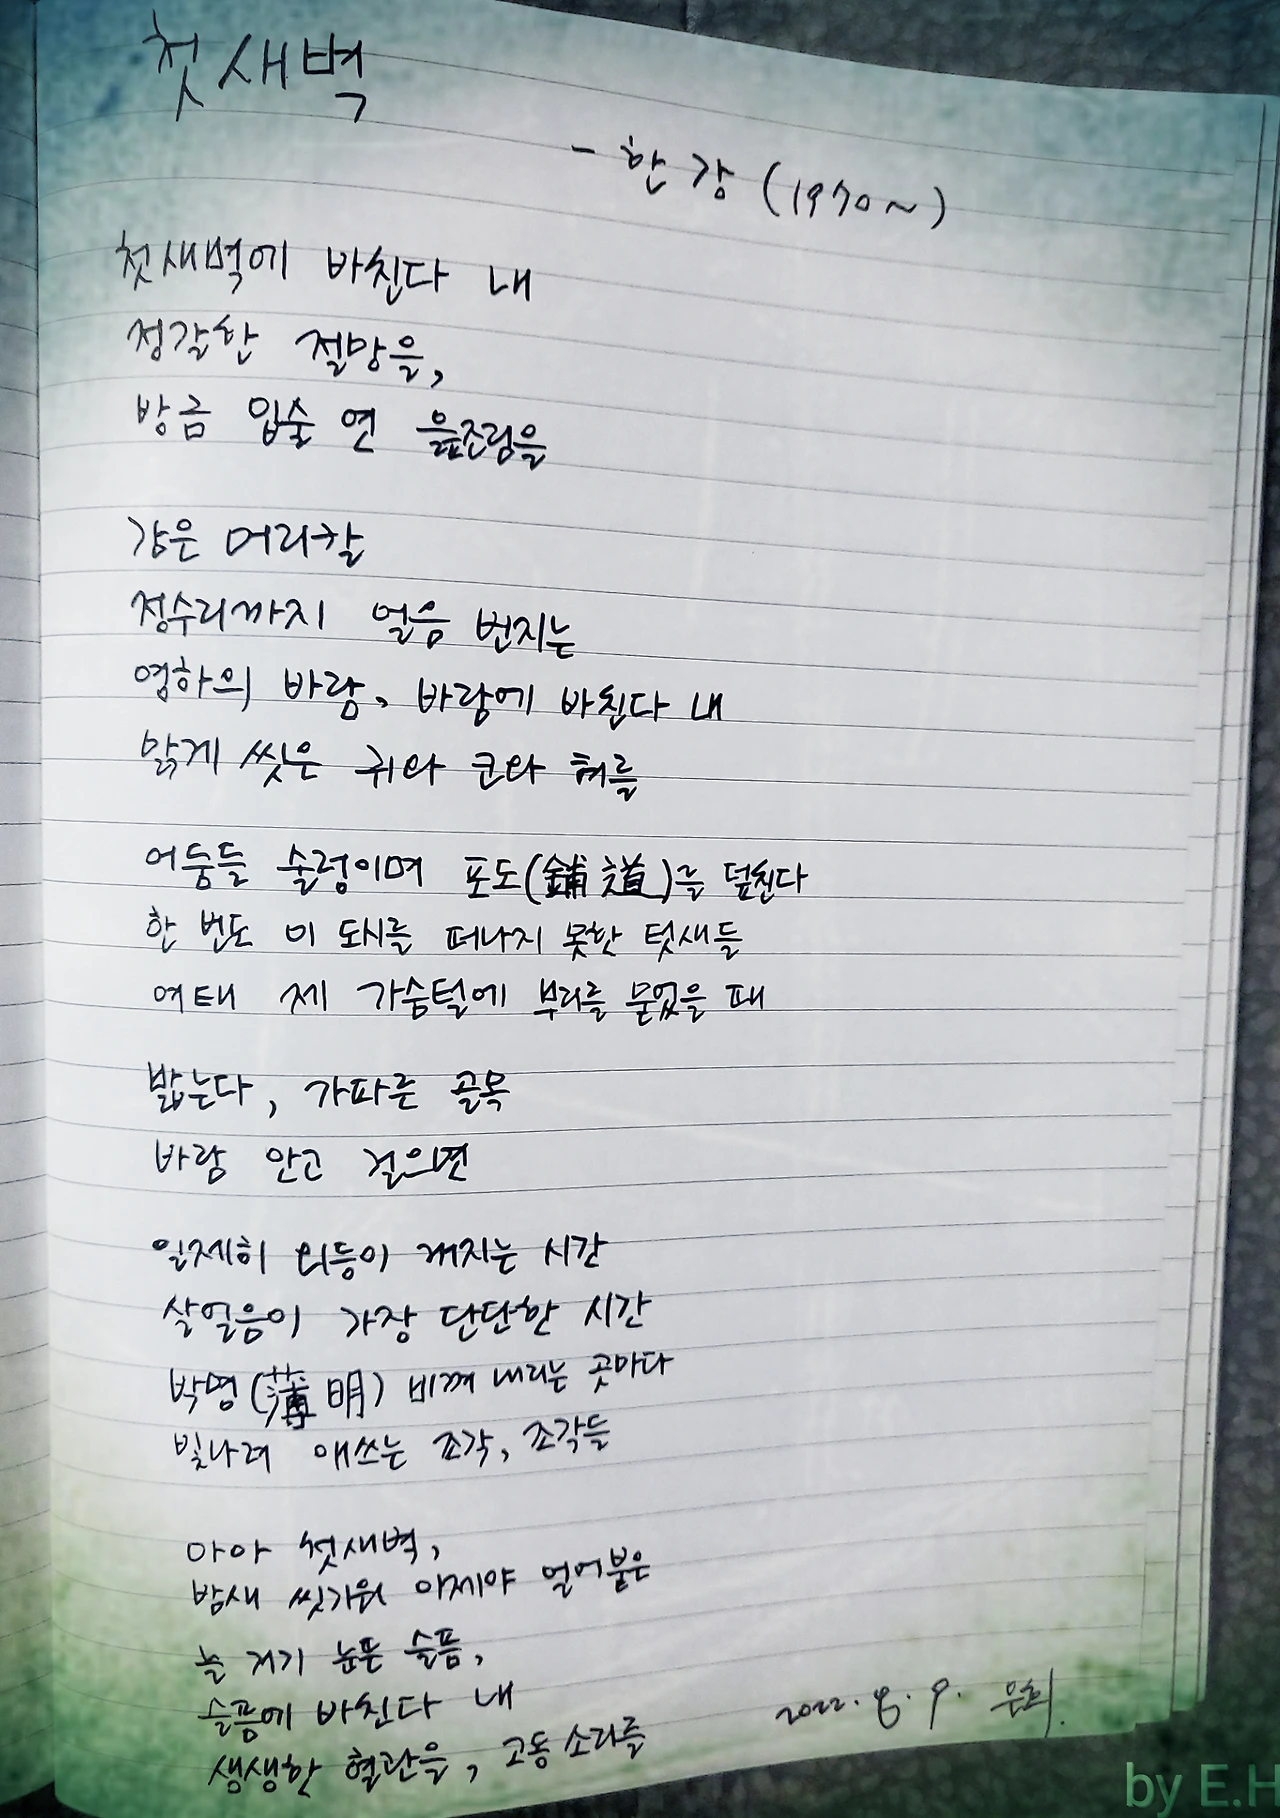 첫새벽
- 한강 (1970~)
첫새벽에 바친다 내
정갈한 절망을,
방금 입술 연 읊조림을
감은 머리칼
정수리까지 얼음 번지는
영하의 바람, 바람에 바친다 내
맑게 씻은 귀와 코와 혀를
어둠들 술렁이며 포도(鋪道)를 덮친다
한 번도 이 도시를 떠나지 못한 텃새들
여태 제 가슴털에 부리를 묻었을 때
밟는다, 가파른 골목
바람 안고 걸으면
일제히 외등이 꺼지는 시간
살얼음이 가장 단단한 시간
박명(薄明) 비껴 내리는 곳마다
빛나려 애쓰는 조각, 조각들
아아 첫새벽,
밤새 씻기워 이제야 얼어붙은
늘 거기 눈뜬 슬픔,
슬픔에 바친다 내
생생한 혈관을, 고동 소리를
2022. 8. 9. 은희
by E.H